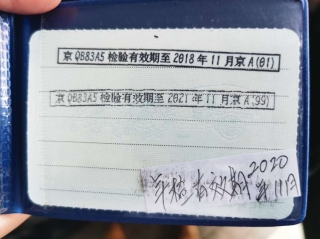 京QB83A5检验有效期至2018年11月京A(01)
京QB83A5检验有效期至2021年11月京A(99)
年检有效期2020年11月